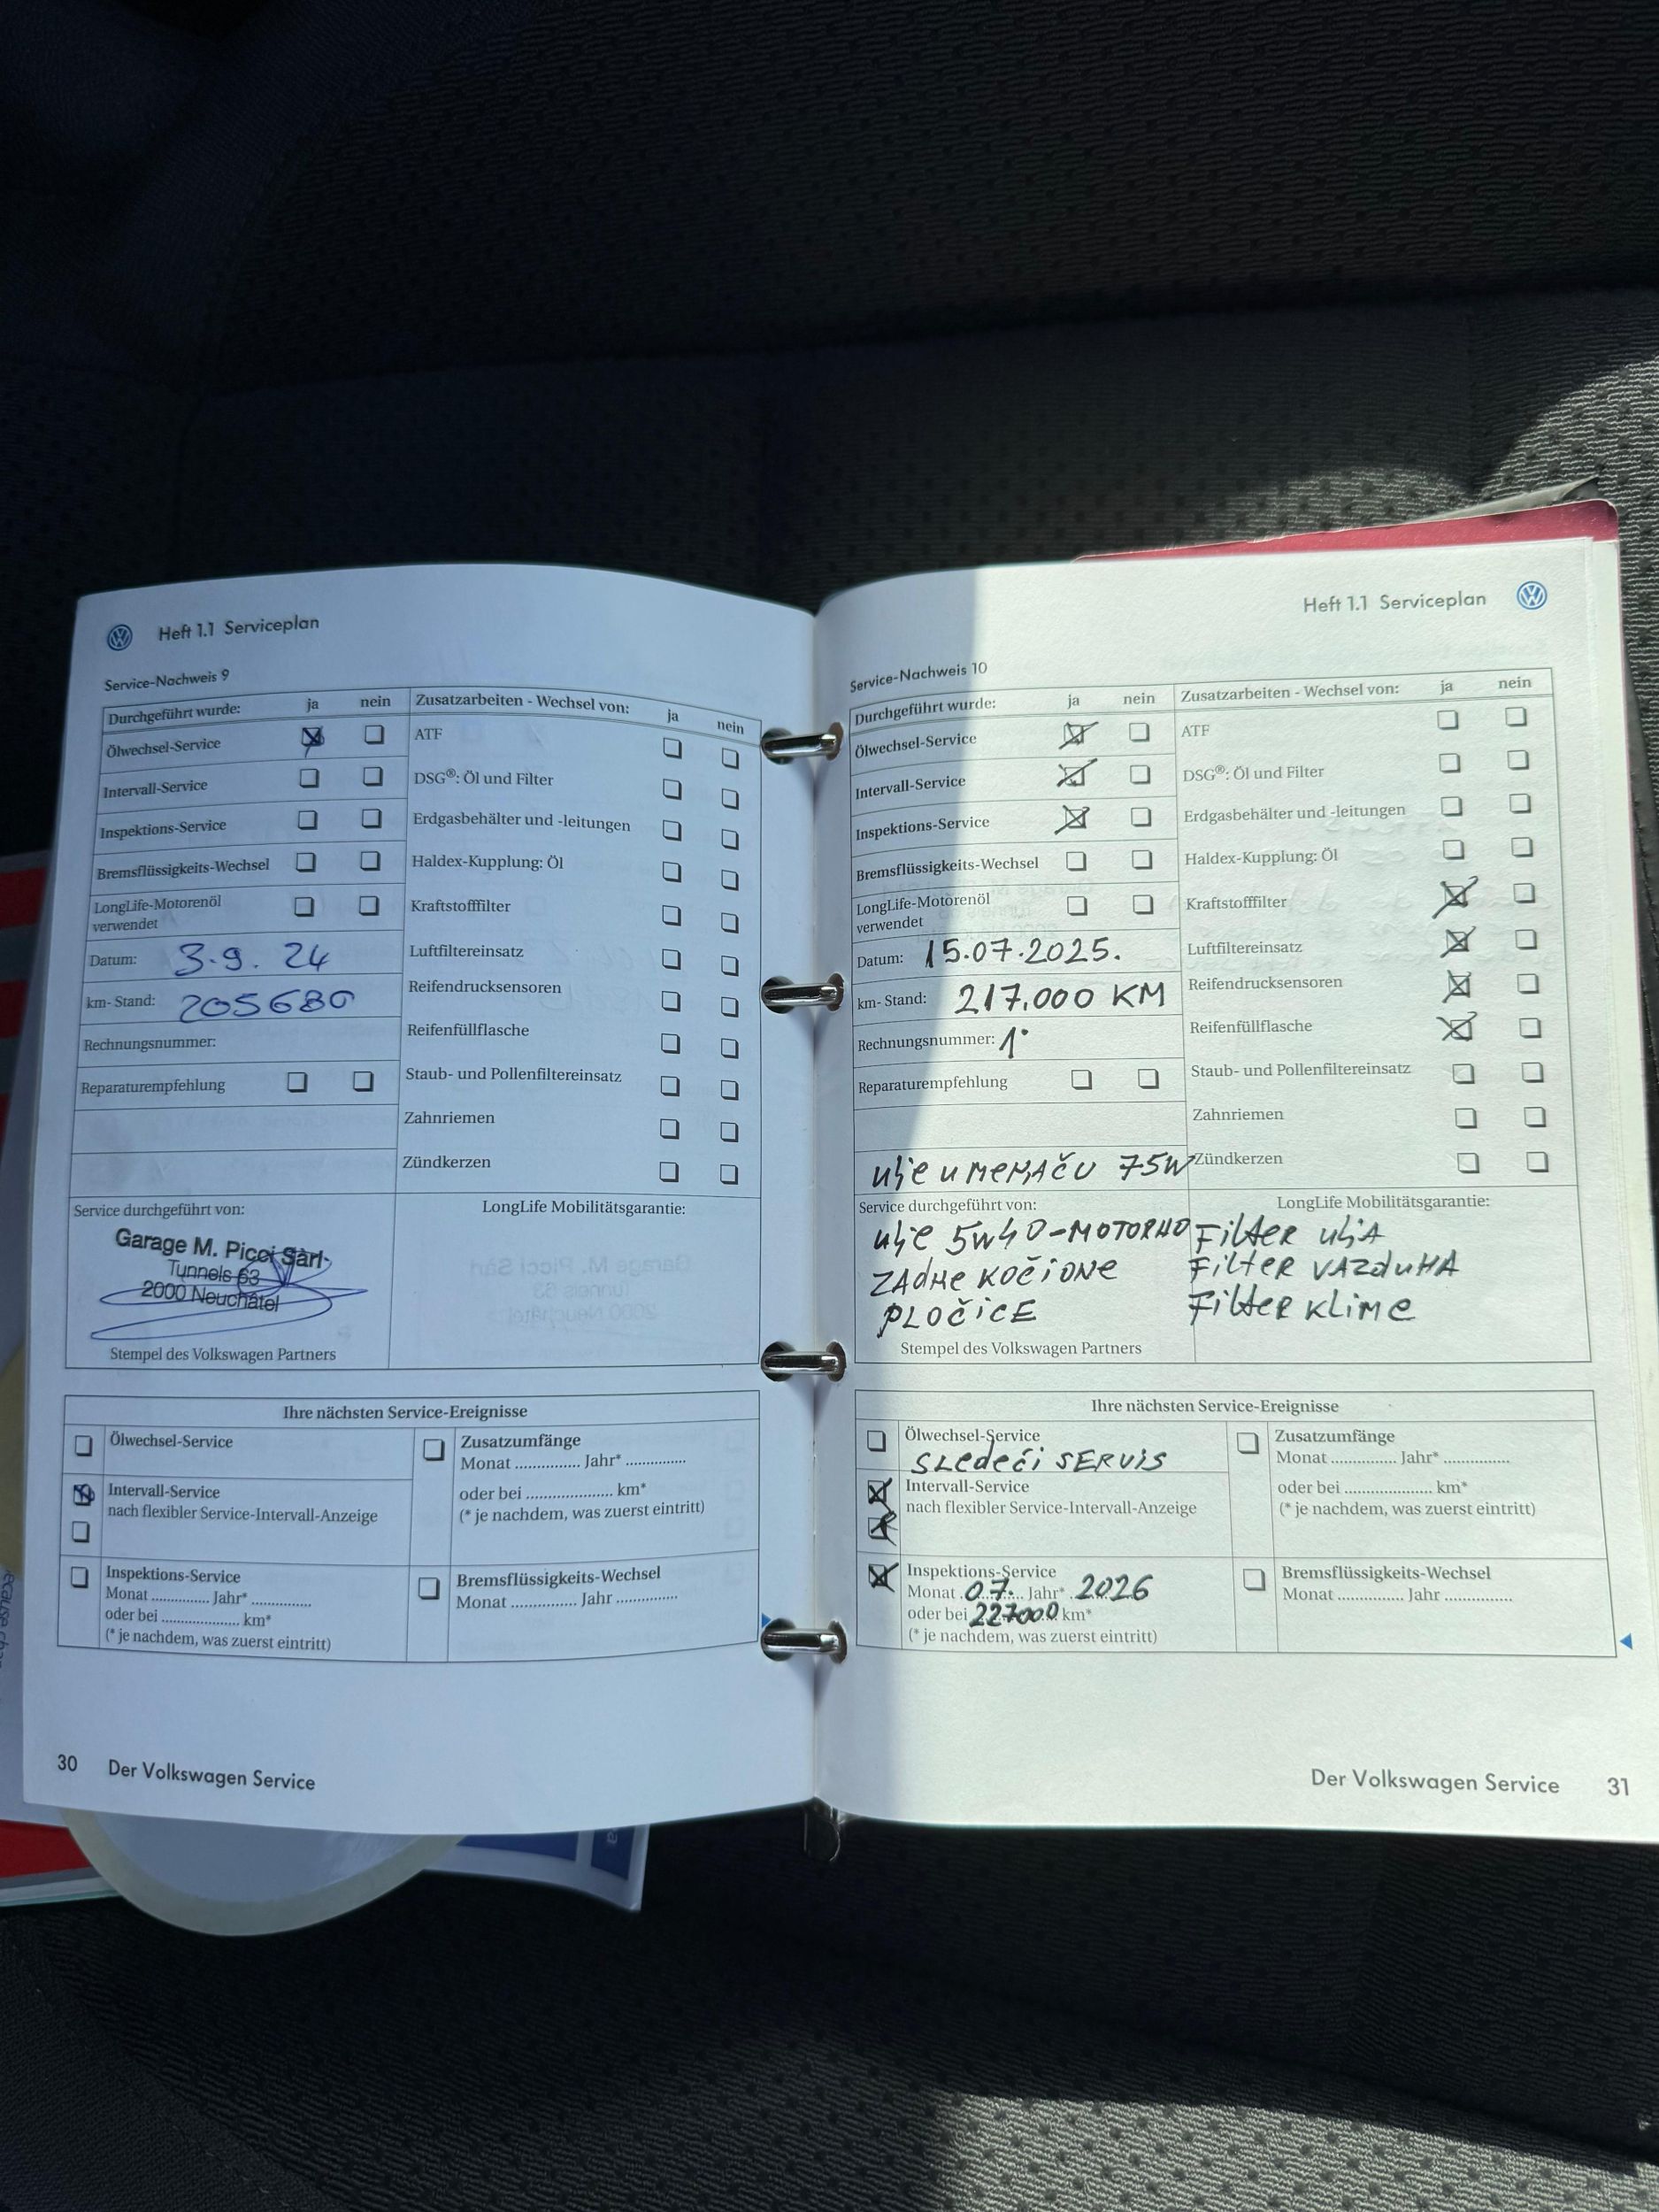 Heft 1.1 Serviceplan
Service-Nachweis 9
Durchgeführt wurde: ja nein
Ölwechsel-Service
Intervall-Service
Inspektions-Service
Bremsflüssigkeits-Wechsel
LongLife-Motorenöl
verwendet
Datum: 3.9.24
km-Stand: 205680
Rechnungsnummer:
Reparaturempfehlung
Zusatzarbeiten - Wechsel von: ja nein
ATF
DSG®: Öl und Filter
Erdgasbehälter und -leitungen
Haldex-Kupplung: Öl
Kraftstofffilter
Luftfiltereinsatz
Reifendrucksensoren
Reifenfüllflasche
Staub- und Pollenfiltereinsatz
Zahnriemen
Zündkerzen
Service durchgeführt von:
Garage M. Picci Sàrl
Tunnels 63
2000 Neuchâtel
Stempel des Volkswagen Partners
LongLife Mobilitätsgarantie:
Ihre nächsten Service-Ereignisse
Ölwechsel-Service
Intervall-Service
nach flexibler Service-Intervall-Anzeige
Inspektions-Service
Monat .............. Jahr* ..............
oder bei .................... km*
(* je nachdem, was zuerst eintritt)
Zusatzumfänge
Monat .............. Jahr* ..............
oder bei .................... km*
(* je nachdem, was zuerst eintritt)
Bremsflüssigkeits-Wechsel
Monat .............. Jahr ..............
30 Der Volkswagen Service
Heft 1.1 Serviceplan
Service-Nachweis 10
Durchgeführt wurde: ja nein
Ölwechsel-Service
Intervall-Service
Inspektions-Service
Bremsflüssigkeits-Wechsel
LongLife-Motorenöl
verwendet
Datum: 15.07.2025.
km-Stand: 217.000 KM
Rechnungsnummer: 1.
Reparaturempfehlung
ulje u menjaču 75W
Zusatzarbeiten - Wechsel von: ja nein
ATF
DSG®: Öl und Filter
Erdgasbehälter und -leitungen
Haldex-Kupplung: Öl
Kraftstofffilter
Luftfiltereinsatz
Reifendrucksensoren
Reifenfüllflasche
Staub- und Pollenfiltereinsatz
Zahnriemen
Zündkerzen
Service durchgeführt von:
ulje 5W40-MOTORNO
ZADNE KOČIONE
PLOČICE
Stempel des Volkswagen Partners
LongLife Mobilitätsgarantie:
Filter ulja
Filter VAZduHA
Filter Klime
Ihre nächsten Service-Ereignisse
Ölwechsel-Service
SLedeći SERVIS
Intervall-Service
nach flexibler Service-Intervall-Anzeige
Inspektions-Service
Monat 07. Jahr* 2026
oder bei 227000 km*
(* je nachdem, was zuerst eintritt)
Zusatzumfänge
Monat .............. Jahr* ..............
oder bei .................... km*
(* je nachdem, was zuerst eintritt)
Bremsflüssigkeits-Wechsel
Monat .............. Jahr ..............
Der Volkswagen Service 31